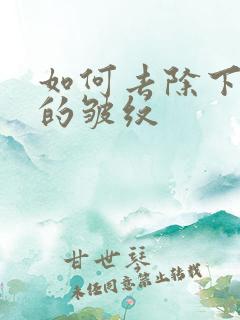 如何去除下
的皱纹
甘世琴
未经同意,禁止转载